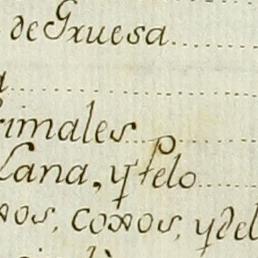 de Gruesa
a
rimales
Lana, y Pelo
xos, coxos, y del